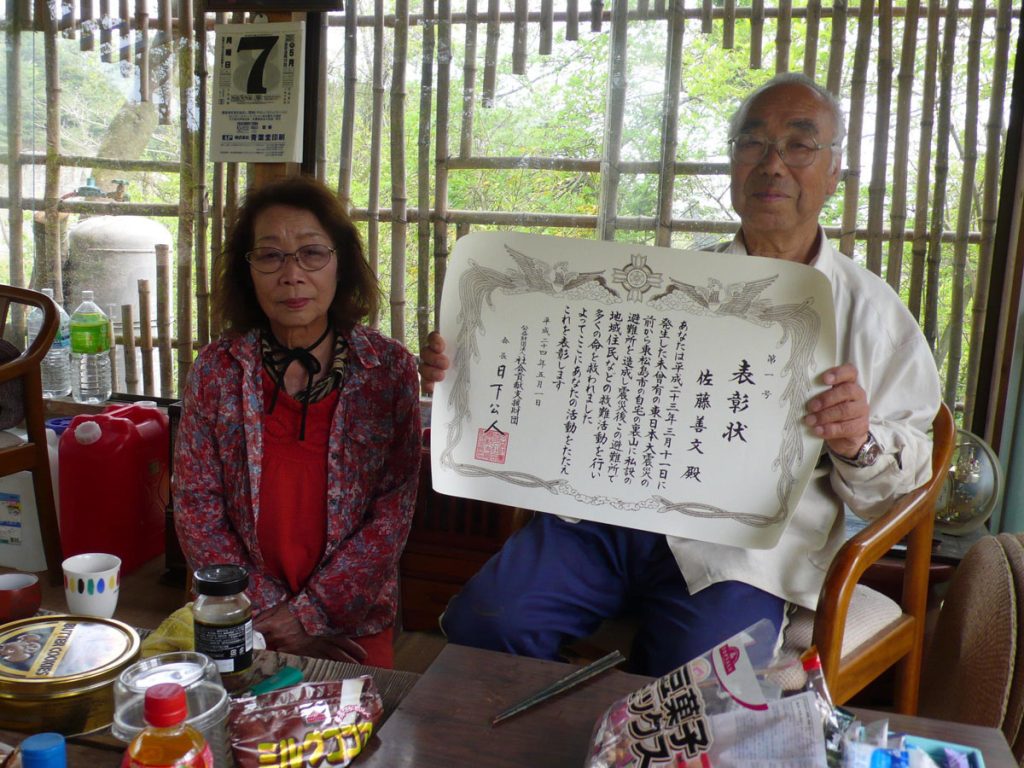 表彰状
第一号
佐藤善文 殿
あなたは平成二十三年三月十一日に
発生した未曾有の東日本大震災の
前から東松島市の自宅の裏山に私設の
避難所を造成し震災後この避難所で
地域住民などの救難活動を行い
多くの命を救われました
よってここにあなたの活動をたたえ
これを表彰します
平成二十四年五月一日
公益財団法人社会貢献支援財団
会長 日下公人
5月
7
月曜日
株式会社 青葉堂印刷
BUTTER COOKIES
ミルクココア
豆菓子
ミックス